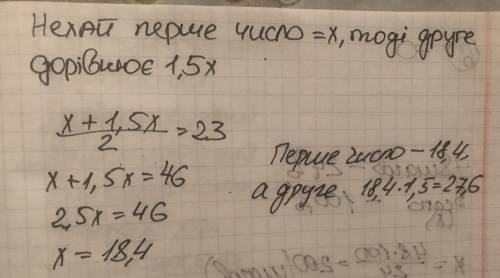 Нехай перше число = x, тоді друге
дорівнює 1,5x
x + 1,5x / 2 = 23
x + 1,5x = 46
2,5x = 46
x = 18,4
Перше число – 18,4,
а друге 18,4·1,5=27,6